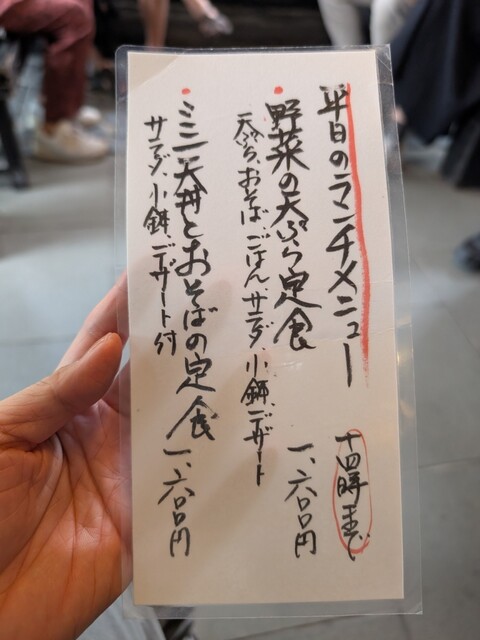 平日のランチメニュー 十四時まで
野菜の天ぷら定食 一、六〇〇円
天ぷら、おそば、ごはん、サラダ、小鉢、デザート
ミニ天丼とおそばの定食 一、六〇〇円
サラダ、小鉢、デザート付